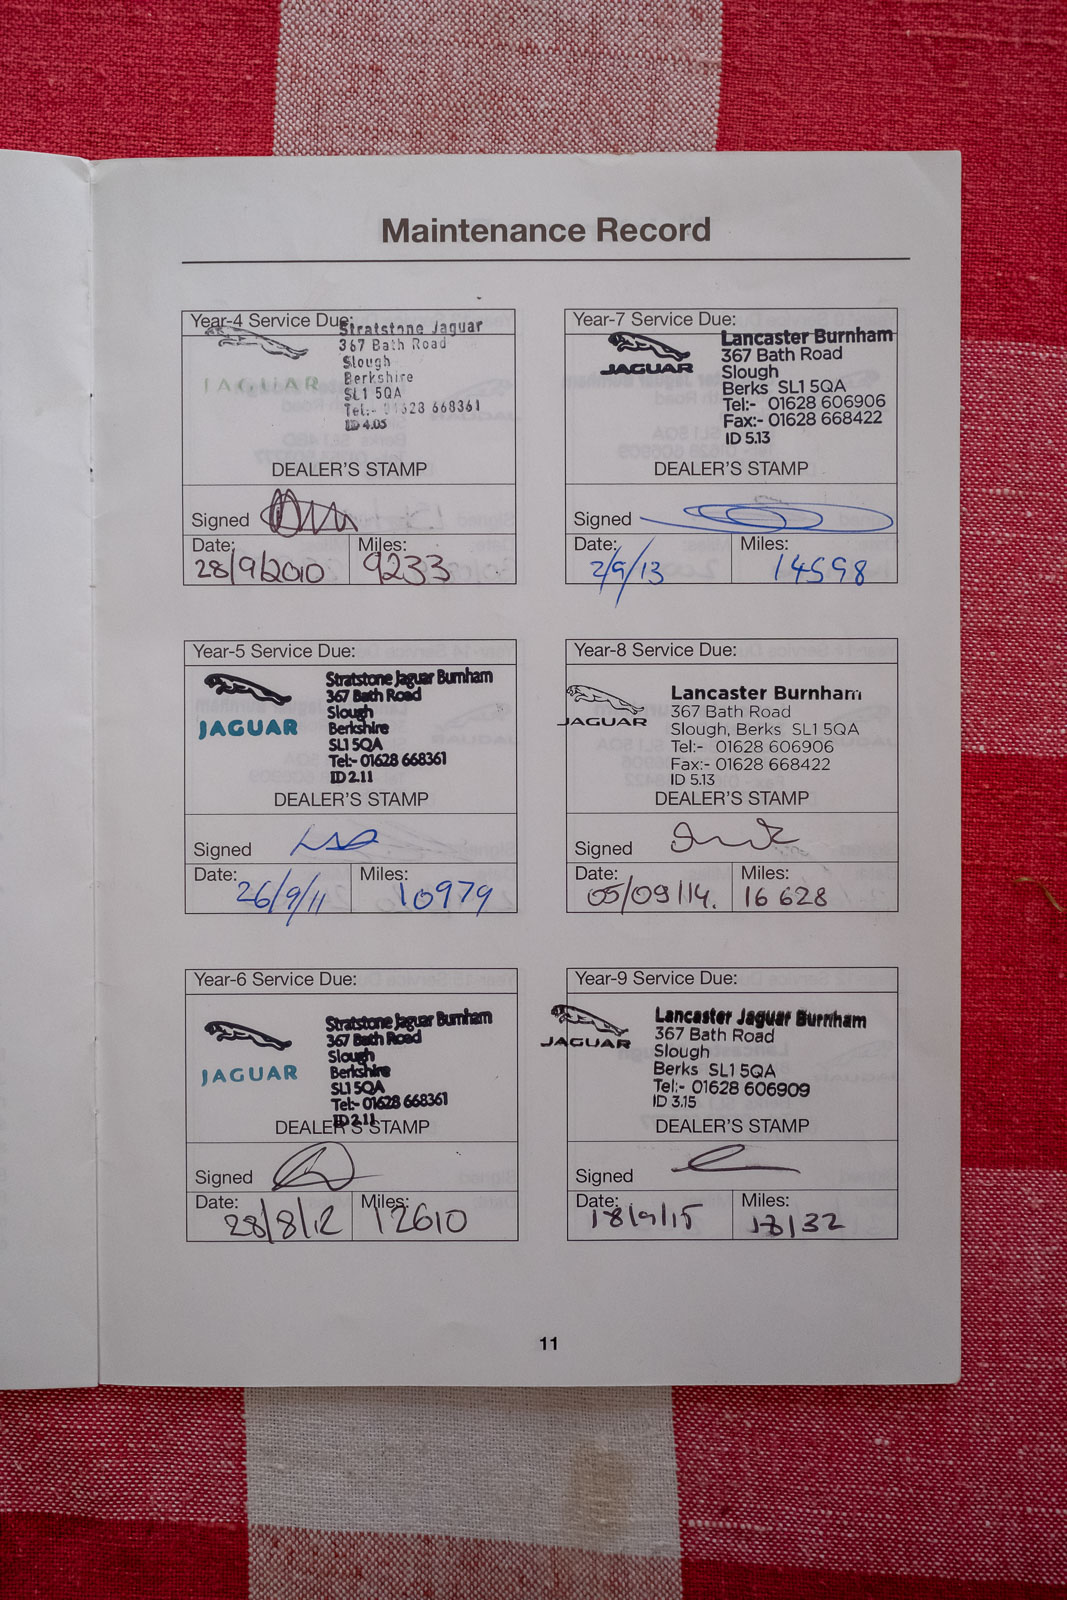 Maintenance Record
Year-4 Service Due:
Stratstone Jaguar
367 Bath Road
Slough
Berkshire
SL1 5QA
Tel:- 01628 668361
ID 4.05
JAGUAR
DEALER'S STAMP
Signed
Date: Miles:
28/9/2010 9233
Year-5 Service Due:
Stratstone Jaguar Burnham
367 Bath Road
Slough
Berkshire
SL1 5QA
Tel:- 01628 668361
ID 2.11
JAGUAR
DEALER'S STAMP
Signed
Date: Miles:
26/9/11 10979
Year-6 Service Due:
Stratstone Jaguar Burnham
367 Bath Road
Slough
Berkshire
SL1 5QA
Tel:- 01628 668361
ID 2.11
JAGUAR
DEALER'S STAMP
Signed
Date: Miles:
28/8/12 12610
Year-7 Service Due:
Lancaster Burnham
367 Bath Road
Slough
Berks SL1 5QA
Tel:- 01628 606906
Fax:- 01628 668422
ID 5.13
JAGUAR
DEALER'S STAMP
Signed
Date: Miles:
2/9/13 14598
Year-8 Service Due:
Lancaster Burnham
367 Bath Road
Slough, Berks SL1 5QA
Tel:- 01628 606906
Fax:- 01628 668422
ID 5.13
JAGUAR
DEALER'S STAMP
Signed
Date: Miles:
05/09/14. 16 628
Year-9 Service Due:
Lancaster Jaguar Burnham
367 Bath Road
Slough
Berks SL1 5QA
Tel:- 01628 606909
ID 3.15
JAGUAR
DEALER'S STAMP
Signed
Date: Miles:
18/9/15 18132
11